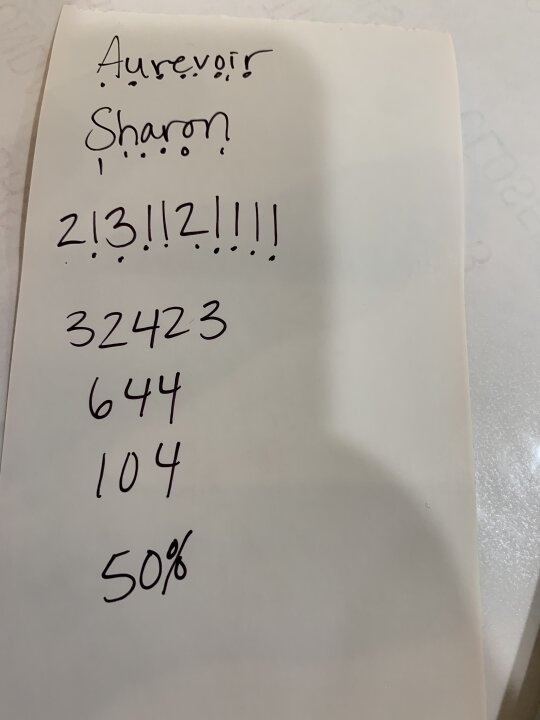 Aurevoir
Sharon
2131121111
32423
644
104
50%